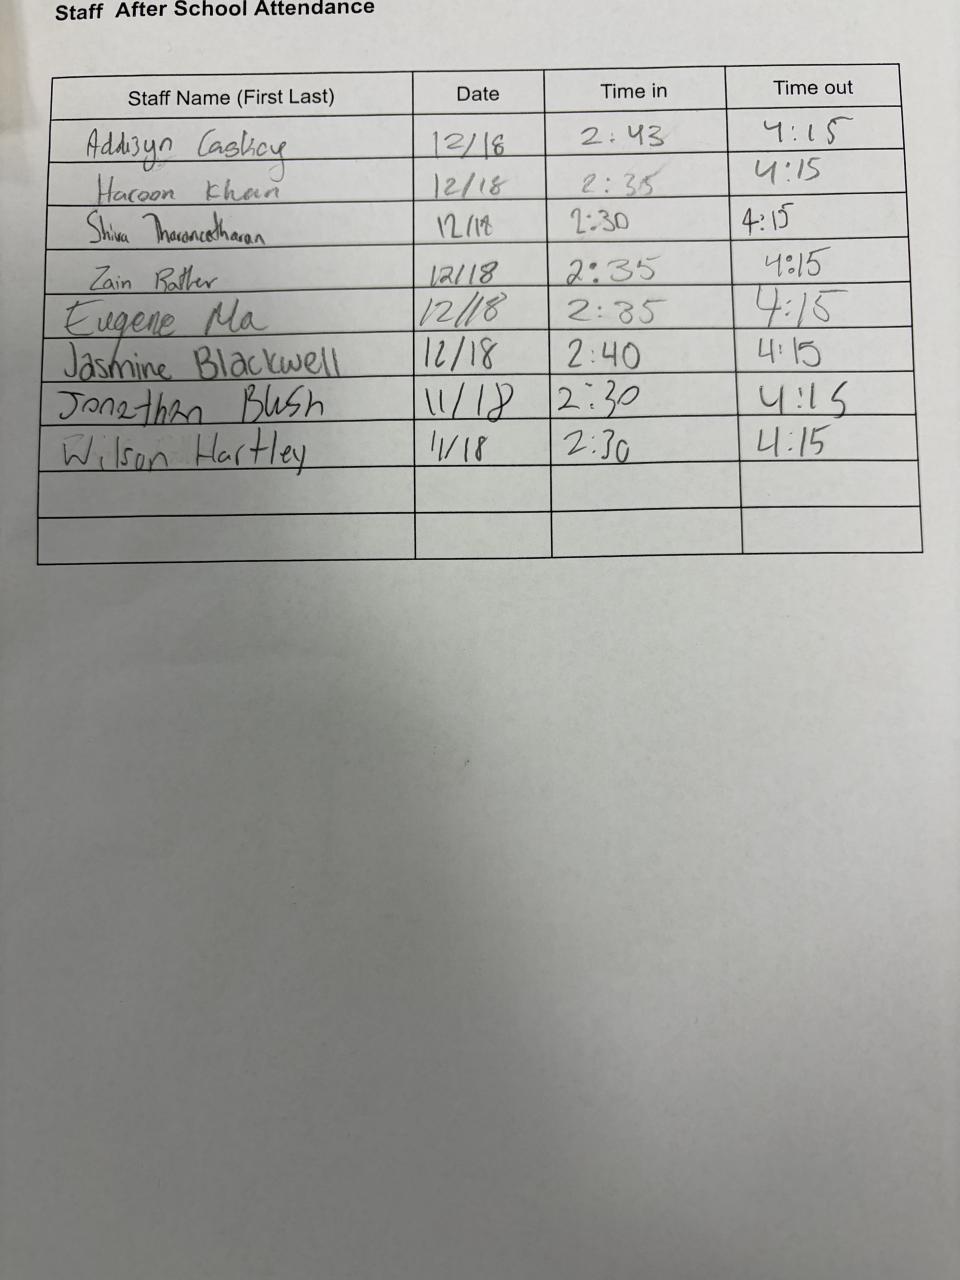 Staff After School Attendance
Staff Name (First Last) Date Time in Time out
Addizyn Caskey 12/18 2:43 4:15
Haroon Khan 12/18 2:35 4:15
Shiva 12/18 2:30 4:15
Zain Rather 12/18 2:35 4:15
Eugene Ma 12/18 2:35 4:15
Jasmine Blackwell 12/18 2:40 4:15
Jonathan Bush 11/18 2:30 4:15
Wilson Hartley 11/18 2:30 4:15